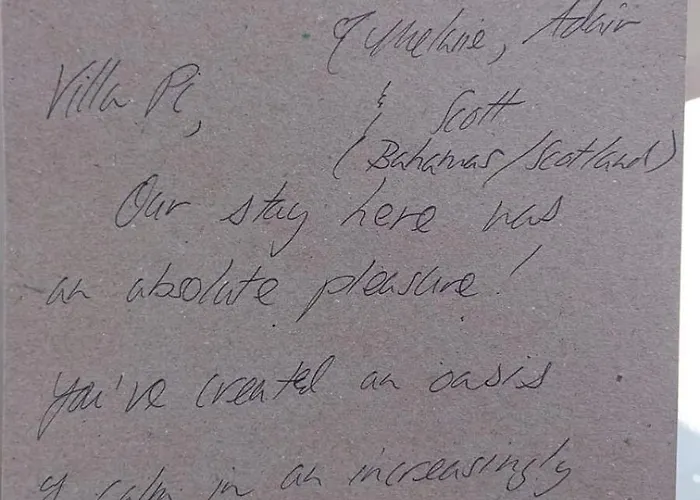 Villa Pi,
Adair
& Scott
(Bahamas/Scotland)
Our stay here was
an absolute pleasure!
You've created an oasis
of calm in an increasingly